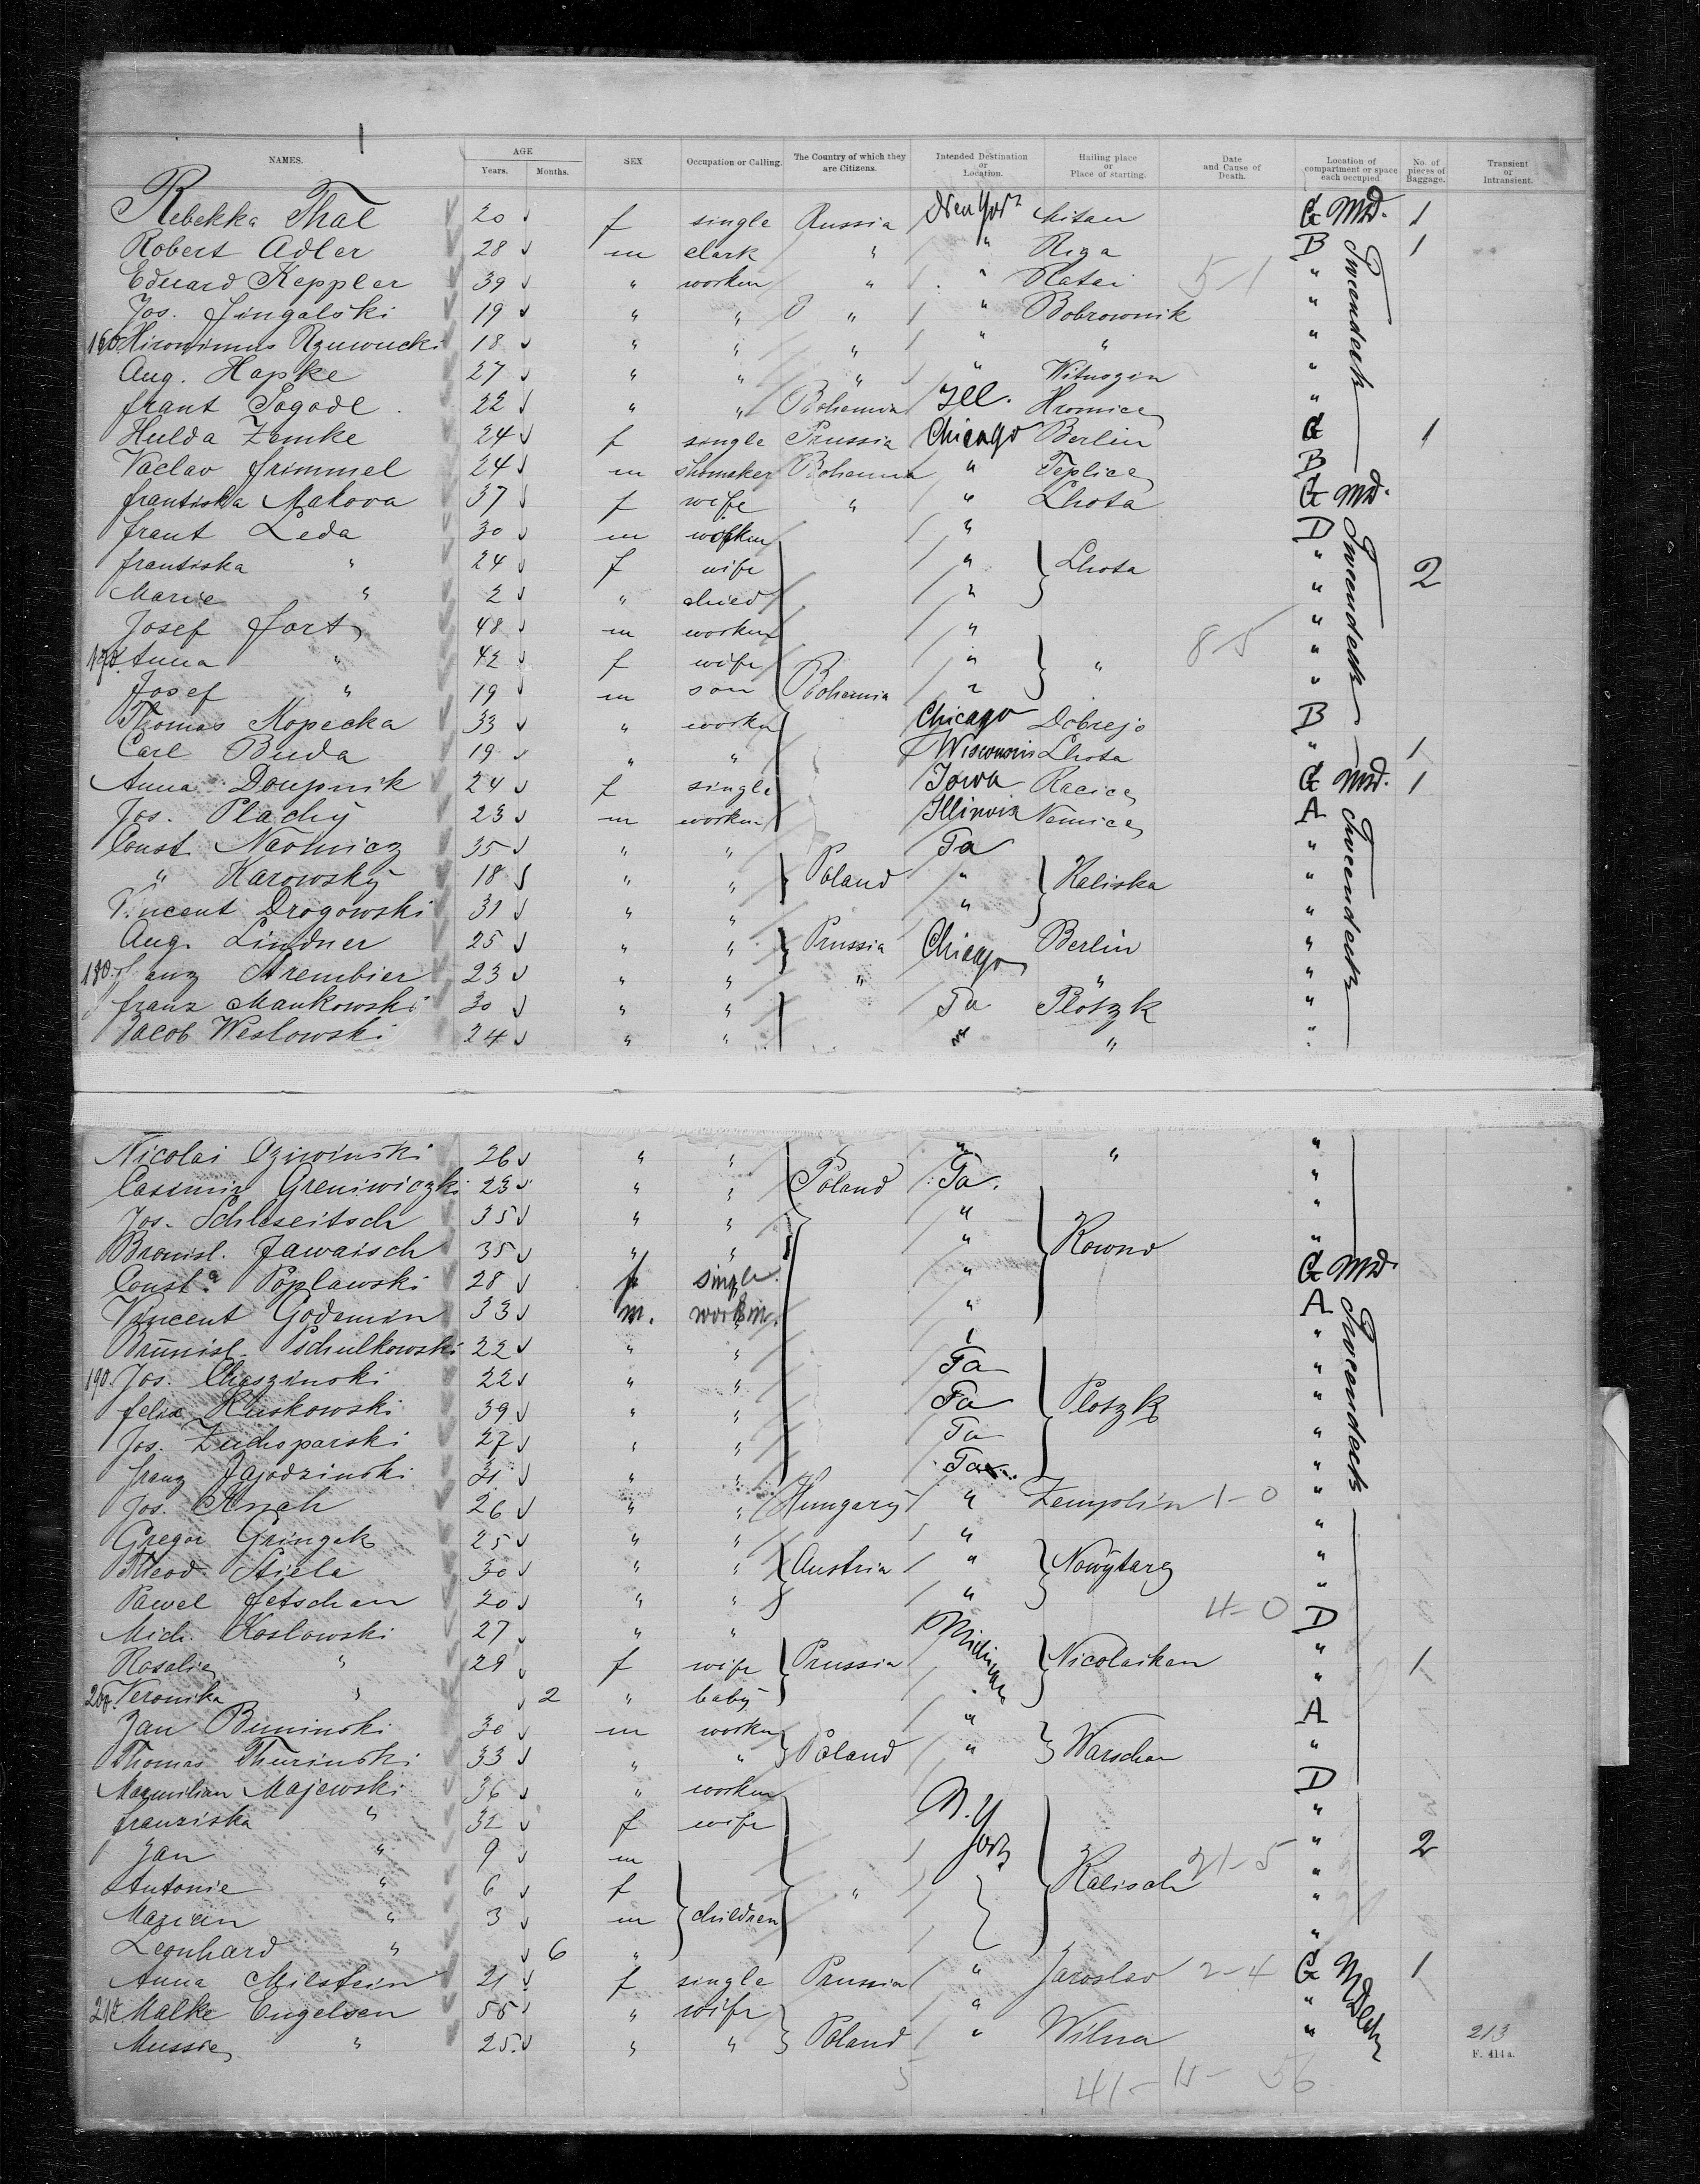 NAMES. AGE Years. Months. SEX Occupation or Calling. The Country of which they are Citizens. Intended Destination or Location. Hailing place or Place of starting. Date and Cause of Death. Location of compartment or space each occupied. No. of pieces of Baggage. Transient or Intransient.
Rebekka Thal 20 f single Russia New York Mitau G Md. 1
Robert Adler 28 m clerk " " Riga B 1
Eduard Keppler 39 " worken " " 5-1 "
Jos. 19 " " " " Bobrownik "
160 18 " " " " " "
Aug. Hapke 27 " " " " "
frant 22 " " Bohemia Ill. Hromice "
Hulda Zemke 24 f single Prussia Chicago Berlin G 1
Vaclav frimmel 24 m Shomaker Bohemia " Teplice B
frantiska Makova 37 f wife " " Lhota G Md.
frant Leda 30 m " D
frantiska " 24 f wife " Lhota " 2
Marie " 2 " child " "
Josef fort 48 m worken " "
170 Anna " 42 f wife " " 8-5 "
Josef " 19 m son Bohemia " "
Thomas Kopecka 33 " worken Chicago B
Carl Buda 19 " " Wisconsin Lhota " 1
Anna Doupnik 24 f single Iowa Racice G Md. 1
Jos. Plachy 23 m worken Illinois Nemice A
Const. 35 " " Pa "
" Karowsky 18 " " Poland " Kaliska "
Vincent Drogowski 31 " " " "
Aug. Lindner 25 " " Prussia Chicago Berlin "
180. franz Strembier 23 " " " " "
franz Mankowski 30 " " Pa Plotzk "
Jacob Weslowski 24 " " " " "
Nicolai 26 " " " " "
Casimir Greniwiczki 23 " " Poland Pa. "
Jos. Schleseitsch 35 " " " "
Bronisl. Jawaisch 35 " " " Kowno "
Const.a Poplawski 28 f single " G Md.
Vincent Godemin 33 m. workm. " A
Brunisl. Pschulkowski 22 " " "
190. Jos. 22 " " Pa "
felix Kuskowski 39 " " Pa Plotzk "
Jos. 27 " " Pa "
franz Jajodzinski 31 " " Pa "
Jos. Knah 26 " " Hungary " Zemplin 1-0 "
Gregor Gringak 25 " " " "
Theod. Stiela 30 " " Austria " Nowytarg "
Pawel Jetschan 20 " " " "
Mich. Koslowski 27 " " Michigan 4-0 D
Rosalie " 29 f wife Prussia Nicolaiken " 1
200. Veronika " 2 " baby "
Jan Buninski 30 m worken " A
Thomas Thurinski 33 " " Poland " Warschau "
Maxmilian Majewski 36 " worken D
franziska " 32 f wife N.Y "
Jan " 9 m York " 2
Antonie " 6 f " Kalisch 21-5 "
Marian " 3 m children "
Leonhard " 6 " "
Anna Milstein 21 f single Prussia " Jaroslav 2-4 G 1
Malke Engelsen 55 " wife " "
Mussie " 25. " " Poland " Wilna "
213
F. 414 a.
5 41- 11- 56